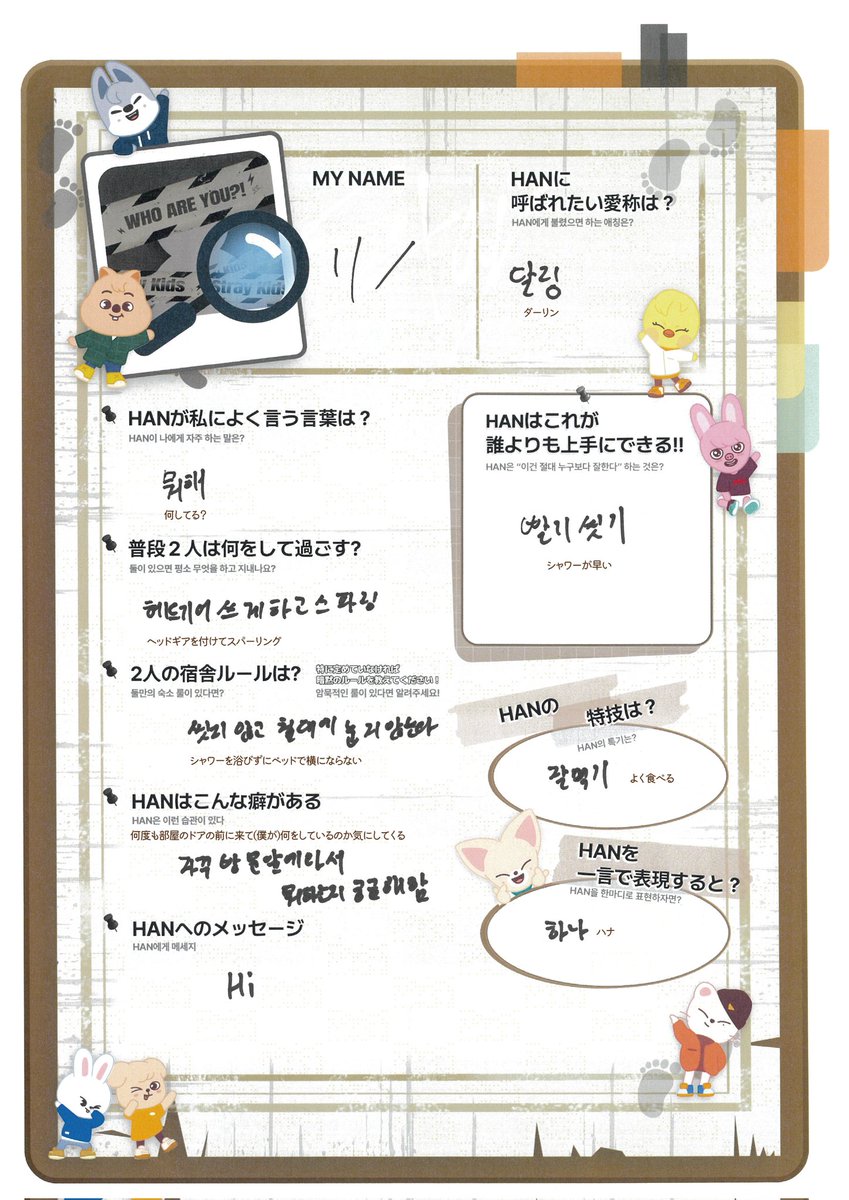 WHO ARE YOU?!
Stray Kids
MY NAME
リノ
HANに
呼ばれたい愛称は？
HAN에게 불렸으면 하는 애칭은?
달링
ダーリン
HANが私によく言う言葉は？
HAN이 나에게 자주 하는 말은?
뭐해
何してる？
HANはこれが
誰よりも上手にできる!!
HAN은 "이건 절대 누구보다 잘한다" 하는 것은?
빨리 씻기
シャワーが早い
普段２人は何をして過ごす？
둘이 있으면 평소 무엇을 하고 지내나요?
헤드기어 쓰게하고 스파링
ヘッドギアを付けてスパーリング
2人の宿舎ルールは?
特に定めていなければ
暗黙のルールを教えてください！
둘만의 숙소 룰이 있다면?
암묵적인 룰이 있다면 알려주세요!
씻지 않고 침대에 눕지 않는다
シャワーを浴びずにベッドで横にならない
HANの 特技は？
HAN의 특기는?
잘먹기
よく食べる
HANはこんな癖がある
HAN은 이런 습관이 있다
何度も部屋のドアの前に来て(僕が)何をしているのか気にしてくる
자꾸 방 문앞에와서
뭐하는지 궁금해함
HANを
一言で表現すると？
HAN을 한마디로 표현하자면?
하나
ハナ
HANへのメッセージ
HAN에게 메세지
Hi